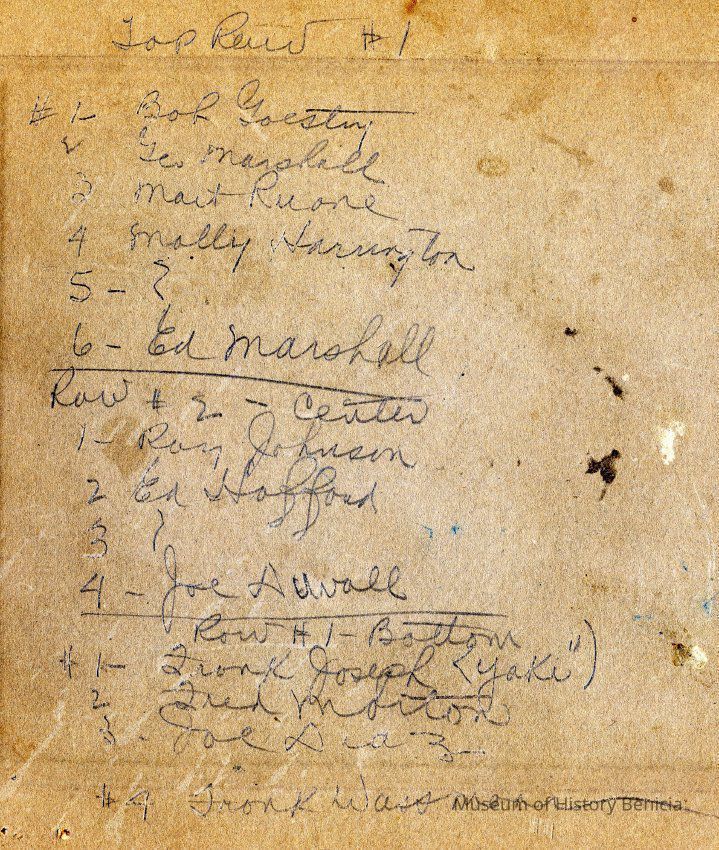 Top Row #1
#1- Bob
2 Geo Marshall
3 Mart Ruone
4 Molly Harrington
5 - ?
6 - Ed Marshall
Row #2 - Center
1- Ray Johnson
2 Ed Hofford
3 ?
4 - Joe Duvall
Row #1- Bottom
#1- Frank Joseph ("Yaki")
2 Fred Morton
3 - Joe Diaz
#4 Frank
Museum of History Benicia